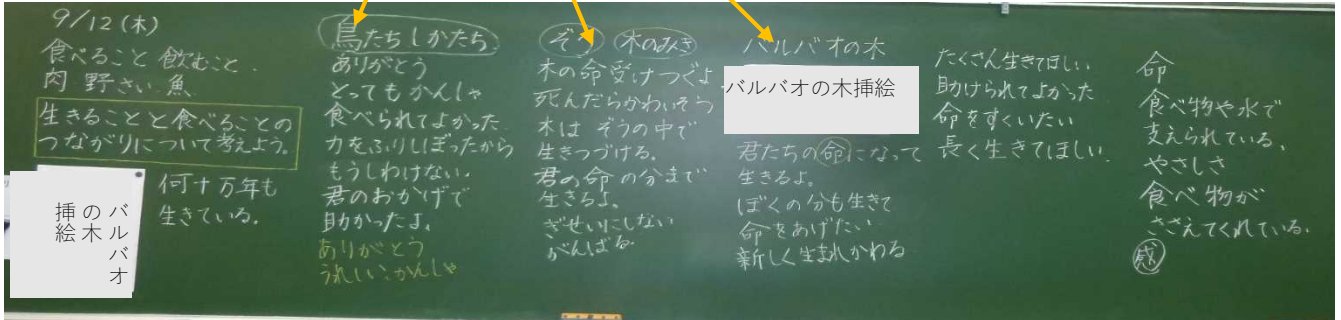 9/12(木)
食べること 飲むこと.
肉 野さい 魚
生きることと食べることの
つながりについて考えよう。
バルバオ
の木
挿絵
何十万年も
生きている。
鳥たち しかたち
ありがとう
とってもかんしゃ
食べられてよかった
力をふりしぼったから
もうしわけない。
君のおかげで
助かったよ。
ありがとう
うれしい、かんしゃ
ぞう 木のみき
木の命受けつぐよ
死んだらかわいそう
木は ぞうの中で
生きつづける。
君の命の分まで
生きるよ。
ぎせいにしない
がんばる
バルバオの木
バルバオの木挿絵
君たちの命になって
生きるよ。
ぼくの分も生きて
命をあげたい
新しく生まれかわる
たくさん生きてほしい
助けられてよかった
命をすくいたい
長く生きてほしい.
命
食べ物や水で
支えられている、
やさしさ
食べ物が
ささえてくれている.
感